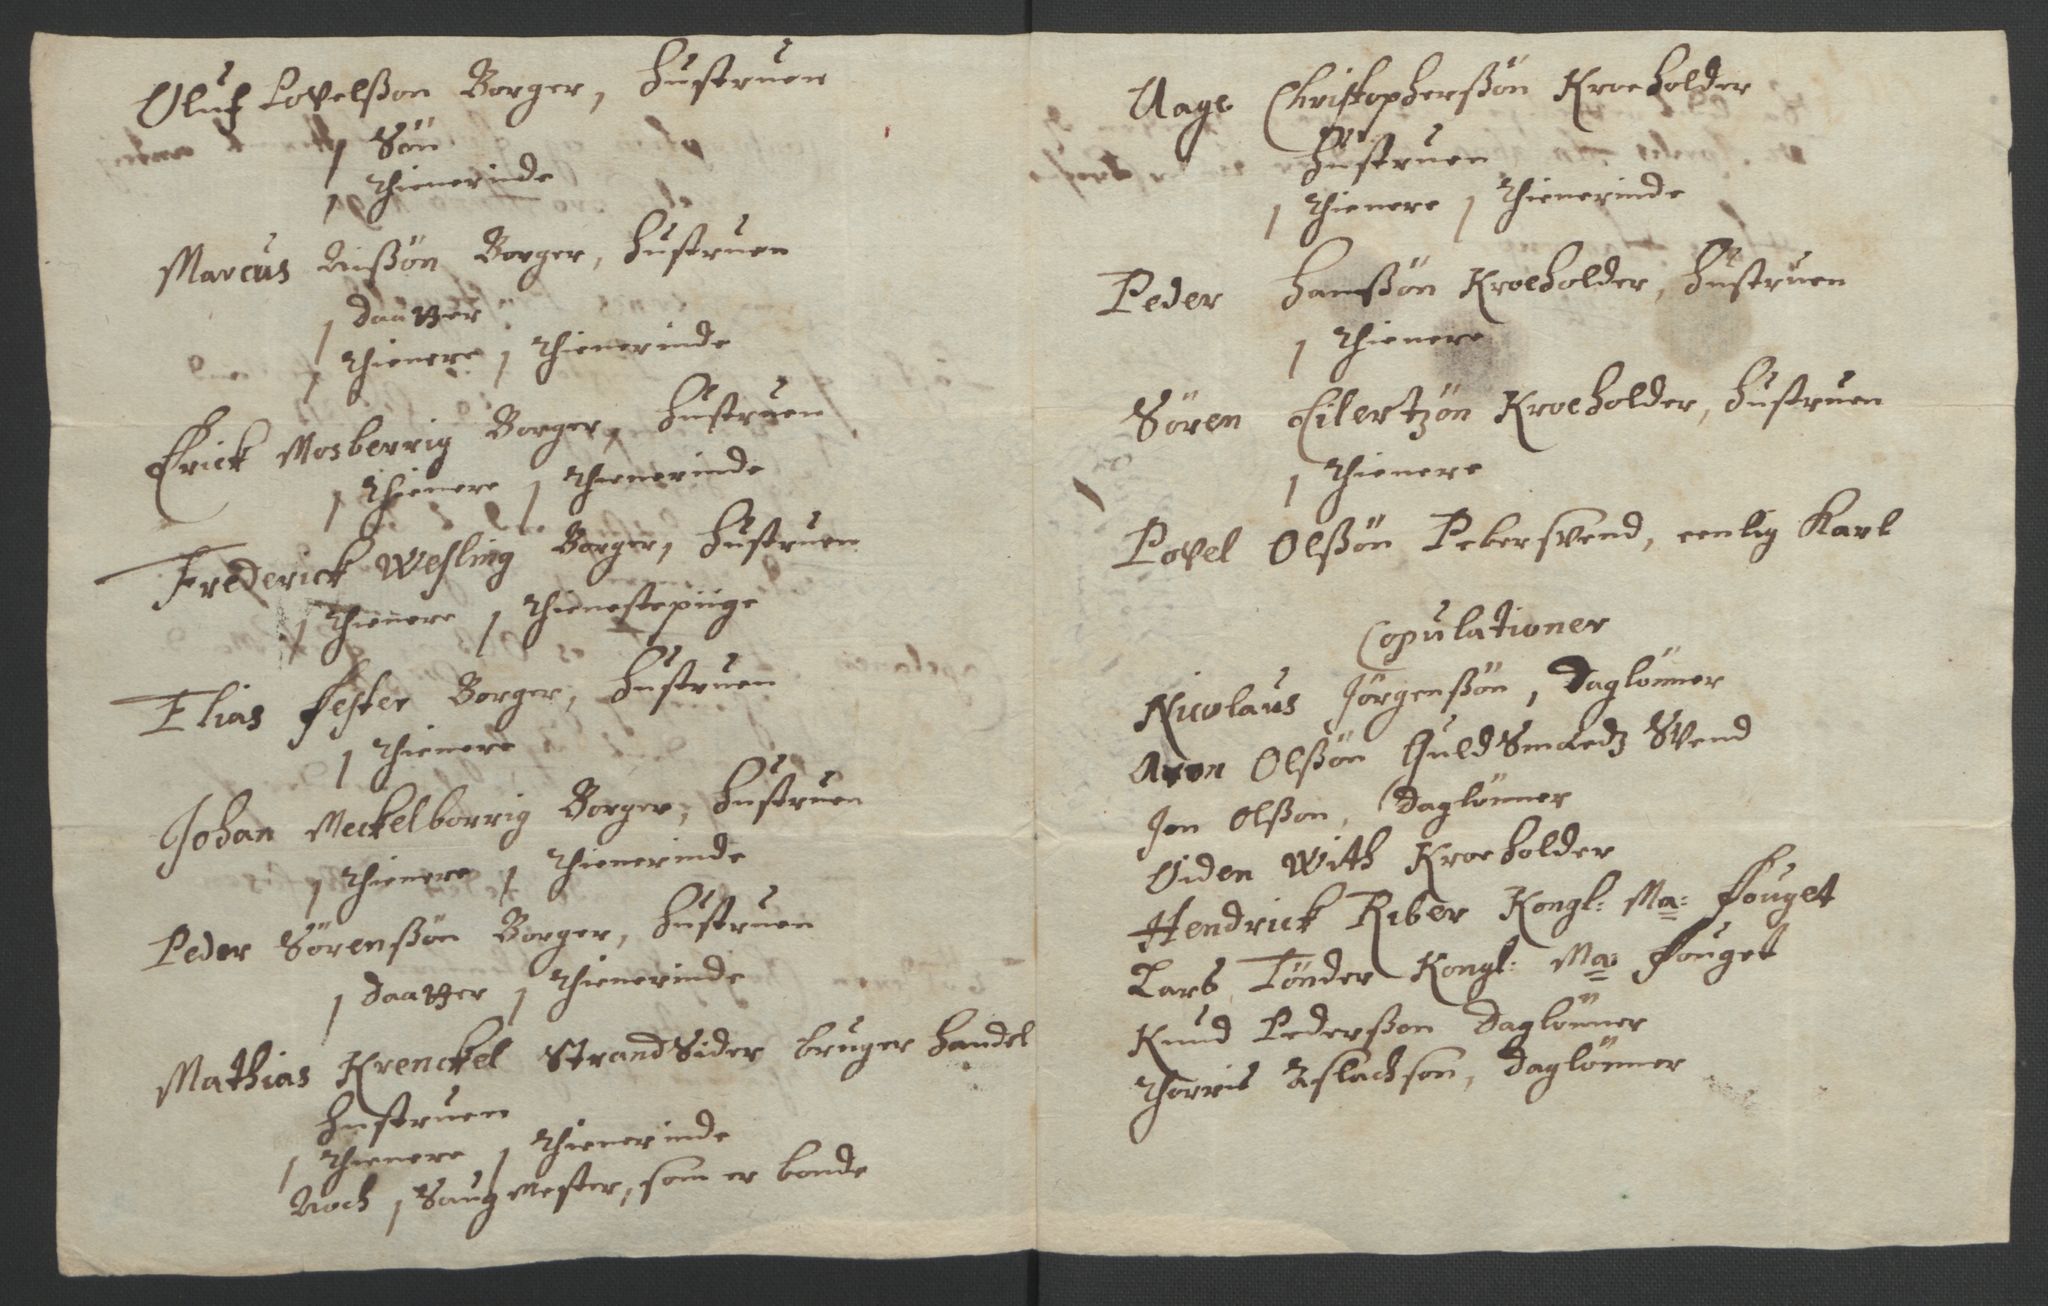 Oluf Povelßon Borger, Hustruen
1 Søn
1 Thienerinde
Marcus Nißön Borger, Hustruen
1 Daatter
1 Thienere 1 Thienerinde
Erick Mosberrig Borger, Hustruen
1 Thienere 1 Thienerinde
Frederick Wesling Borger, Hustruen
1 Thienere 1 Thienestepiige
Elias Fester Borger, Hustruen
1 Thienere
Johan Meckelborrig Borger, Hustruen
1 Thienere 1 Thienerinde
Peder Sörenßön Borger, Hustruen
1 Daatter 1 Thienerinde
Mathias Krenckel StrandSider bruger Handel
Hustruen
1 Thienere 1 Thienerinde
Noch 1 Saugmester, som er bonde
Aage Christopherßön Kroeholder
Hustruen
1 Thienere 1 Thienerinde
Peder Hanßön Kroeholder, Hustruen
1 Thienere
Sören Eilertzön Kroeholder, Hustruen
1 Thienere
Povel Olßön Pebersvend, eenlig Karl
Copulationer
Nicolaus Jörgenßön, Daglönner
Aron Olßön Guldsmedz Svend
Jon Olßon, Daglönner
Oiden With Kroeholder
Hendrick Riber Kongl: Ma: Fouget
Lars Tönder Kongl: Ma: Fouget
Knud Pederßon Daglönner
Thorris Aslachson, Daglönner